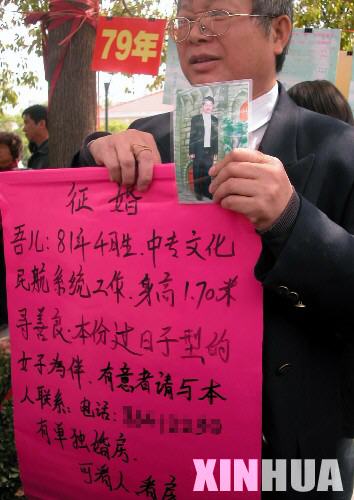 79年
征婚
吾儿:81年4月生.中专文化
民航系统工作.身高1.70米
寻善良.本份过日子型的
女子为伴.有意者请与本
人联系.电话:
有单独婚房.
可看人看房
XINHUA
XINHUA